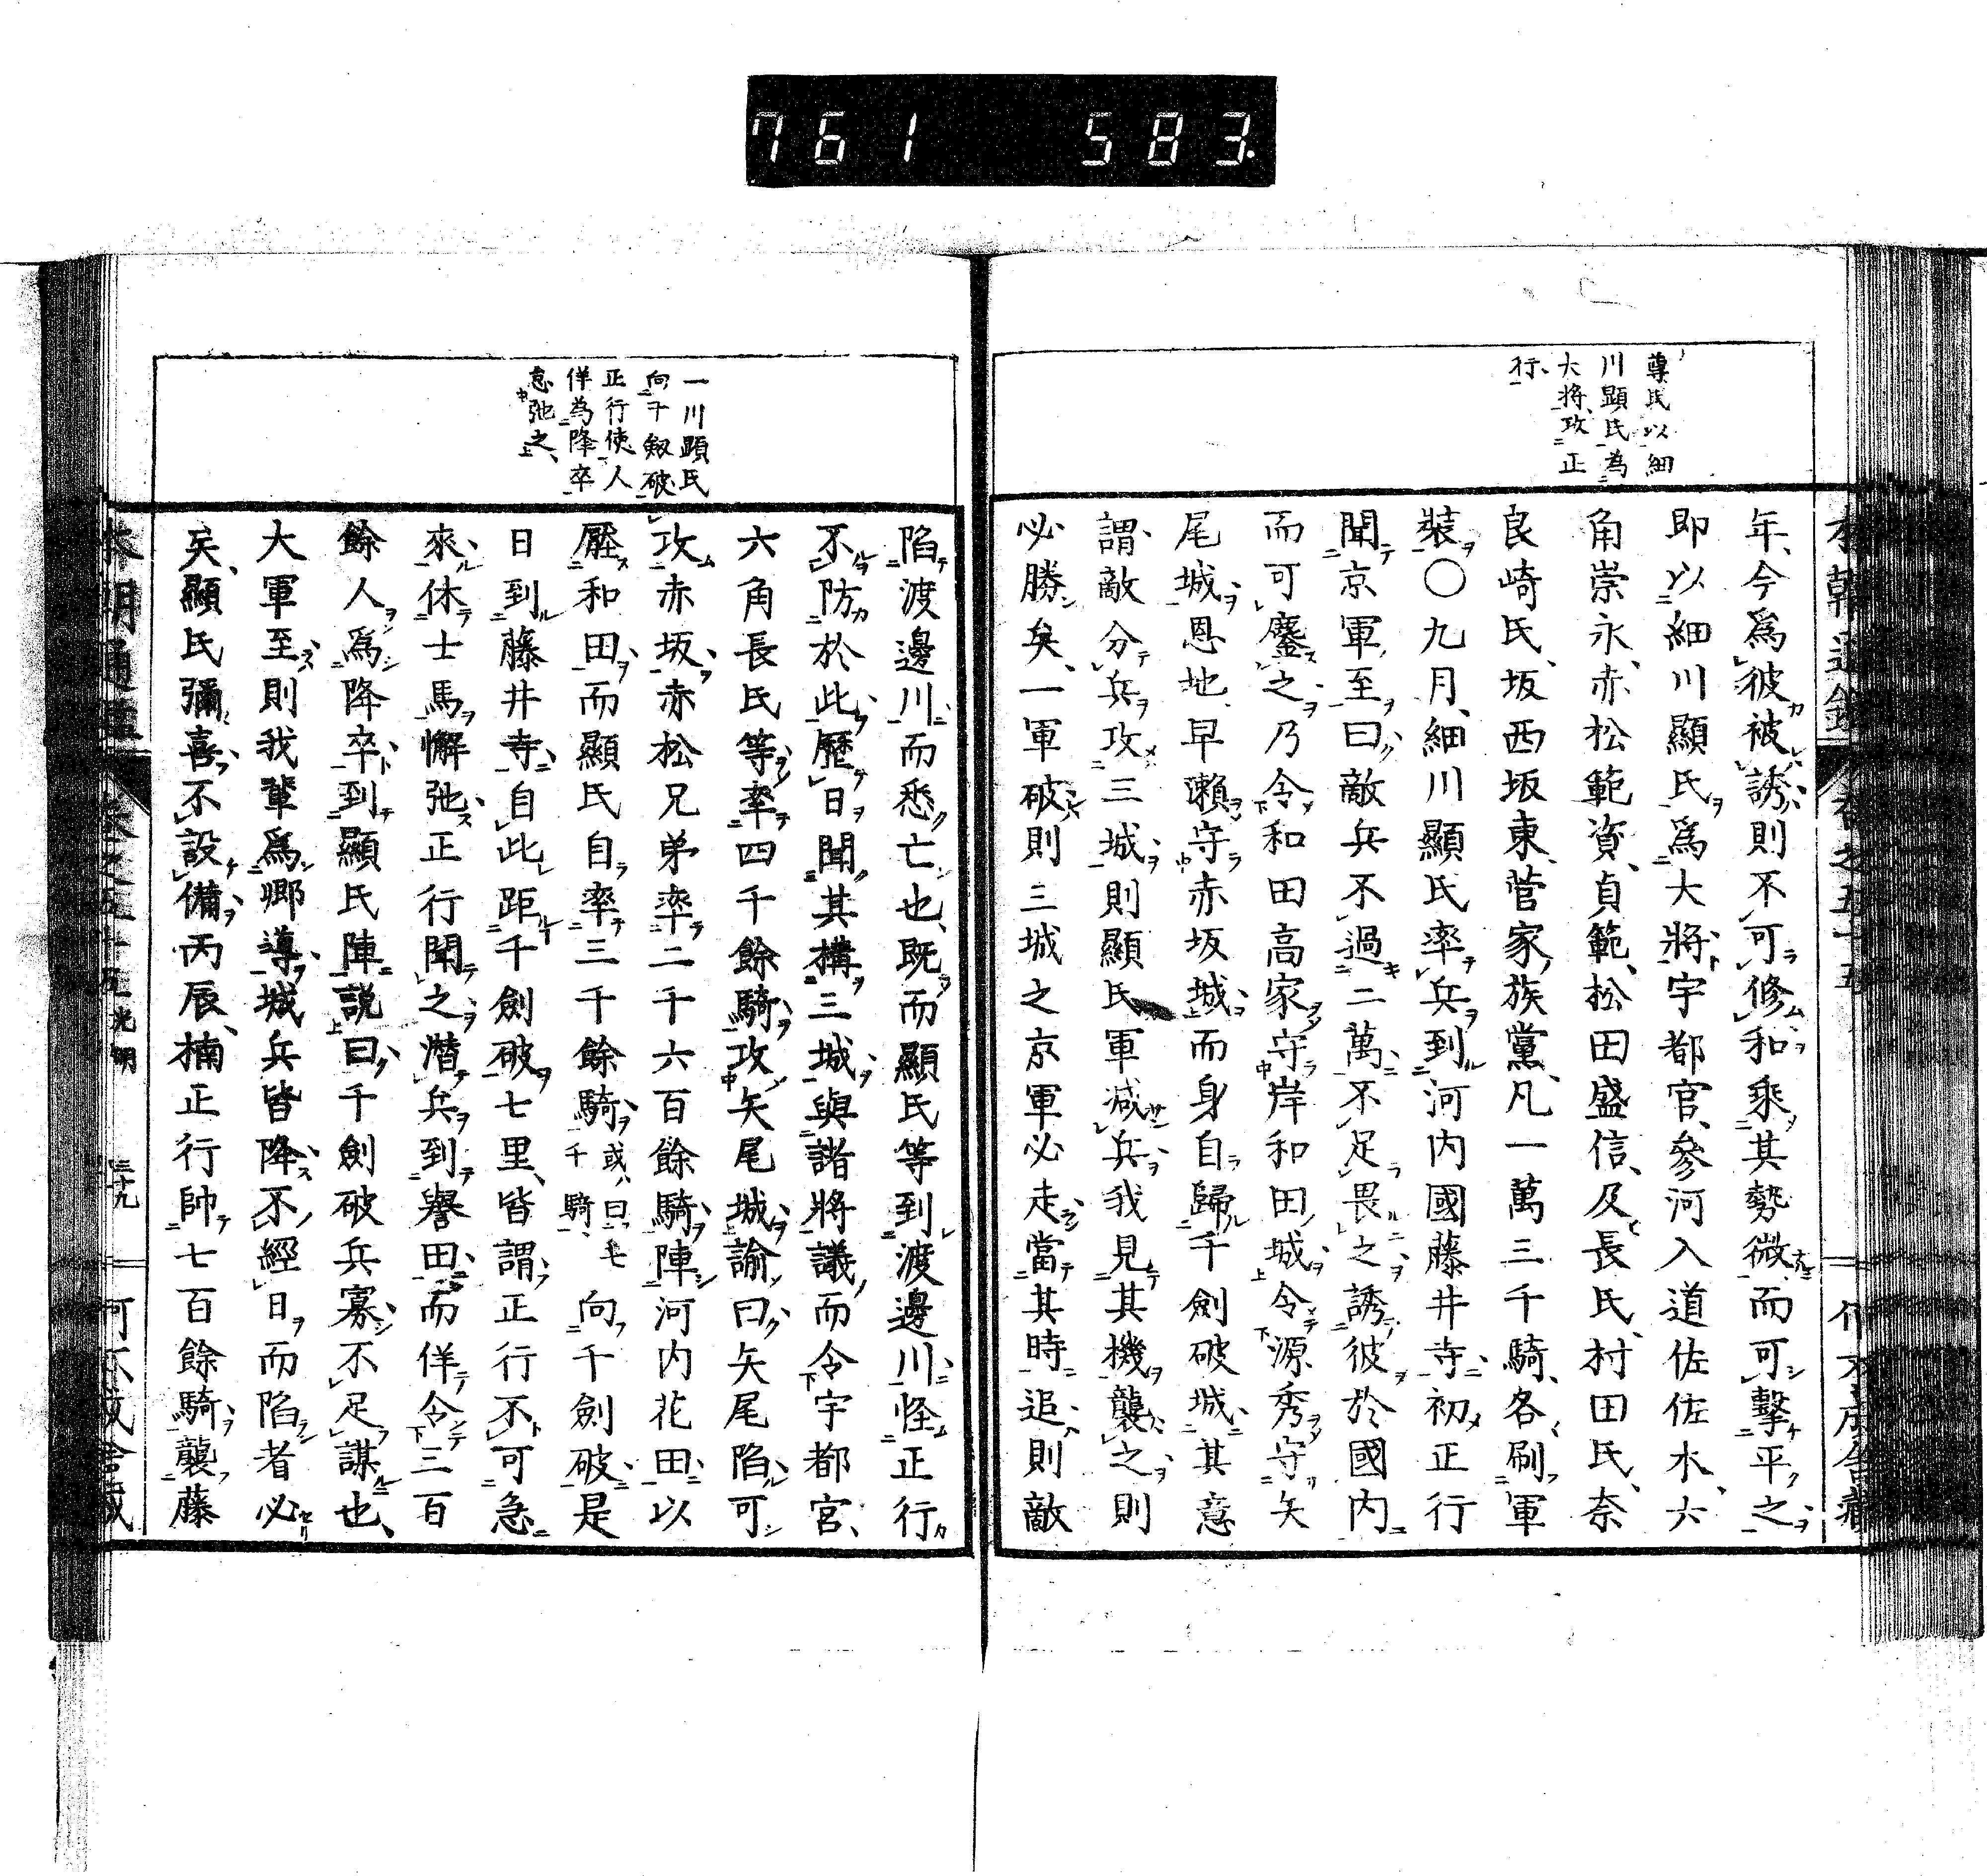 761 583.
尊氏以細
川顕氏為
大将攻正
行
年、今爲彼被誘則不可修和乘其勢微而可擊平之
即以細川顯氏爲大將宇都宮、參河入道佐佐木、六
角崇永、赤松範資、貞範、松田盛信、及長氏、村田氏、奈
良崎氏、坂西坂東、菅家族黨、凡一萬三千騎、各刷軍
裝〇九月、細川顯氏率兵到河内國藤井寺初正行
聞京軍至曰敵兵不過二萬不足畏之誘彼於國内
而可鏖之乃令和田高家守岸和田城令源秀守矢
尾城恩地早瀬守赤坂城而身自歸千劍破城其意
謂敵分兵攻三城則顯氏軍減兵我見其機襲之則
必勝矣、一軍破則三城之京軍必走當其時追則敵
一川顕氏
向千剱破
正行使人
佯為降卒
怠弛之
陷渡邊川而悉亡也、既而顯氏等到渡邊川怪正行
不防於此歷日聞其構三城與諸將議而令宇都宮、
六角長氏等率四千餘騎攻矢尾城諭曰矢尾陷可
攻赤坂赤松兄弟率二千六百餘騎陣河内花田以
壓和田而顯氏自率三千餘騎或曰七千騎、向千劍破是
日到藤井寺自此距千劍破七里、皆謂正行不可急
來休士馬懈弛正行聞之潜兵到譽田而佯令三百
餘人爲降卒到顯氏陣説曰千劍破兵寡不足謀也、
大軍至則我輩爲鄉導城兵皆降不經日而陷者必
矣、顯氏彌喜不設備丙辰、楠正行帥七百餘騎襲藤
三十九